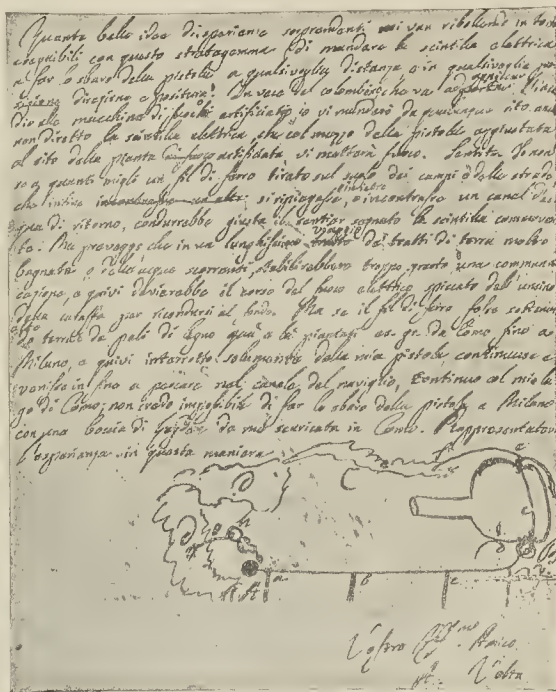 Quante belle idee di sperienze sorprendenti mi van ribollendo in testa
eseguibili con questo stratagemma di mandare la scintilla elettrica
a far lo sbaro della pistola a qualsivoglia distanza e in qualsivoglia
direzione e positura! In vece del colombino che va ad appiccar l'incen
dio alle macchine di fuochi artificiati, io vi manderò da qualunque sito anche
non diretto la scintilla elettrica, che col mezzo della pistola aggiustata
al sito della pianta artificiata vi metterà fuoco. Sentite. Io non
so a quanti migli un fil di ferro tirato sul suolo dei campi o della strada
che infine si ripiegasse indietro, o incontrasse un canal d'ac
qua di ritorno, condurrebbe giusta il sentier segnato la scintilla commoven
te. Ma preveggo che in un lunghissimo viaggio de' tratti di terra molto
bagnata, o delle acque scorrenti, stabilirebbero troppo presto una communi
cazione, e quivi devierebbe il corso del fuoco elettrico spiccato dall'uncino
della caraffa per ricondursi al fondo. Ma se il fil di ferro fosse sostenuto
alto da terra da pali di legno quà e là piantati, ex. gr. da Como fino a
Milano, e quivi interrotto solamente dalla mia pistola, continuasse e
venisse in fine a pescare nel canale del naviglio, continuo col mio la
go di Como; non credo impossibile di far lo sbaro della pistola a Milano
con una boccia di Leyden da me scaricata in Como. Rappresentatevi
l'esperienza in questa maniera
a b c
Vostro Amico
Volta